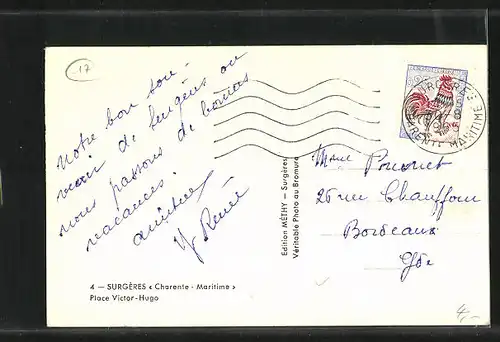 17
Notre bon sou-
venir de Surgères où
nous passons de bonnes
vacances.
amitiés
Renée
4 — SURGÈRES « Charente - Maritime »
Place Victor-Hugo
Edition MÉTHY — Surgères
Véritable Photo au Bromure
SURGÈRES
CHARENTE MARITIME
26 rue Chauffour
Bordeaux
Gde
4,-